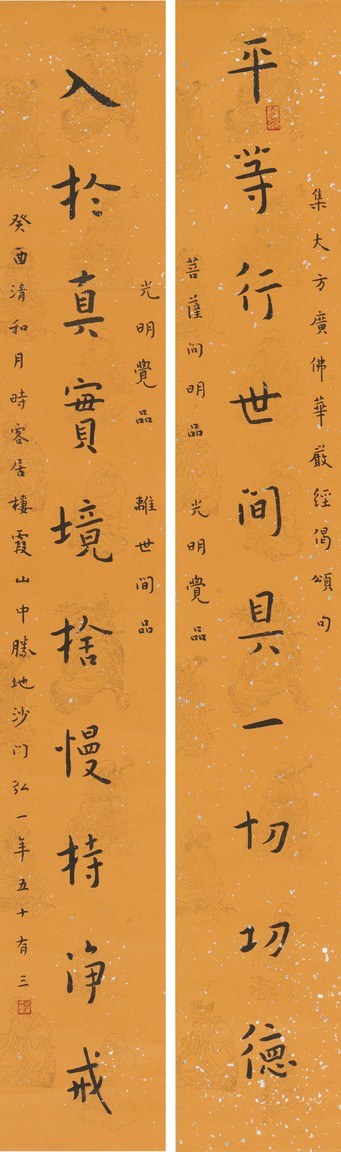 集大方廣佛華嚴經偈頌句
平等行世間具一切功德
菩薩问明品 光明覺品
光明覺品 離世间品
入於真實境捨慢持淨戒
癸酉清和月時客居棲霞山中勝地沙门弘一年五十有三